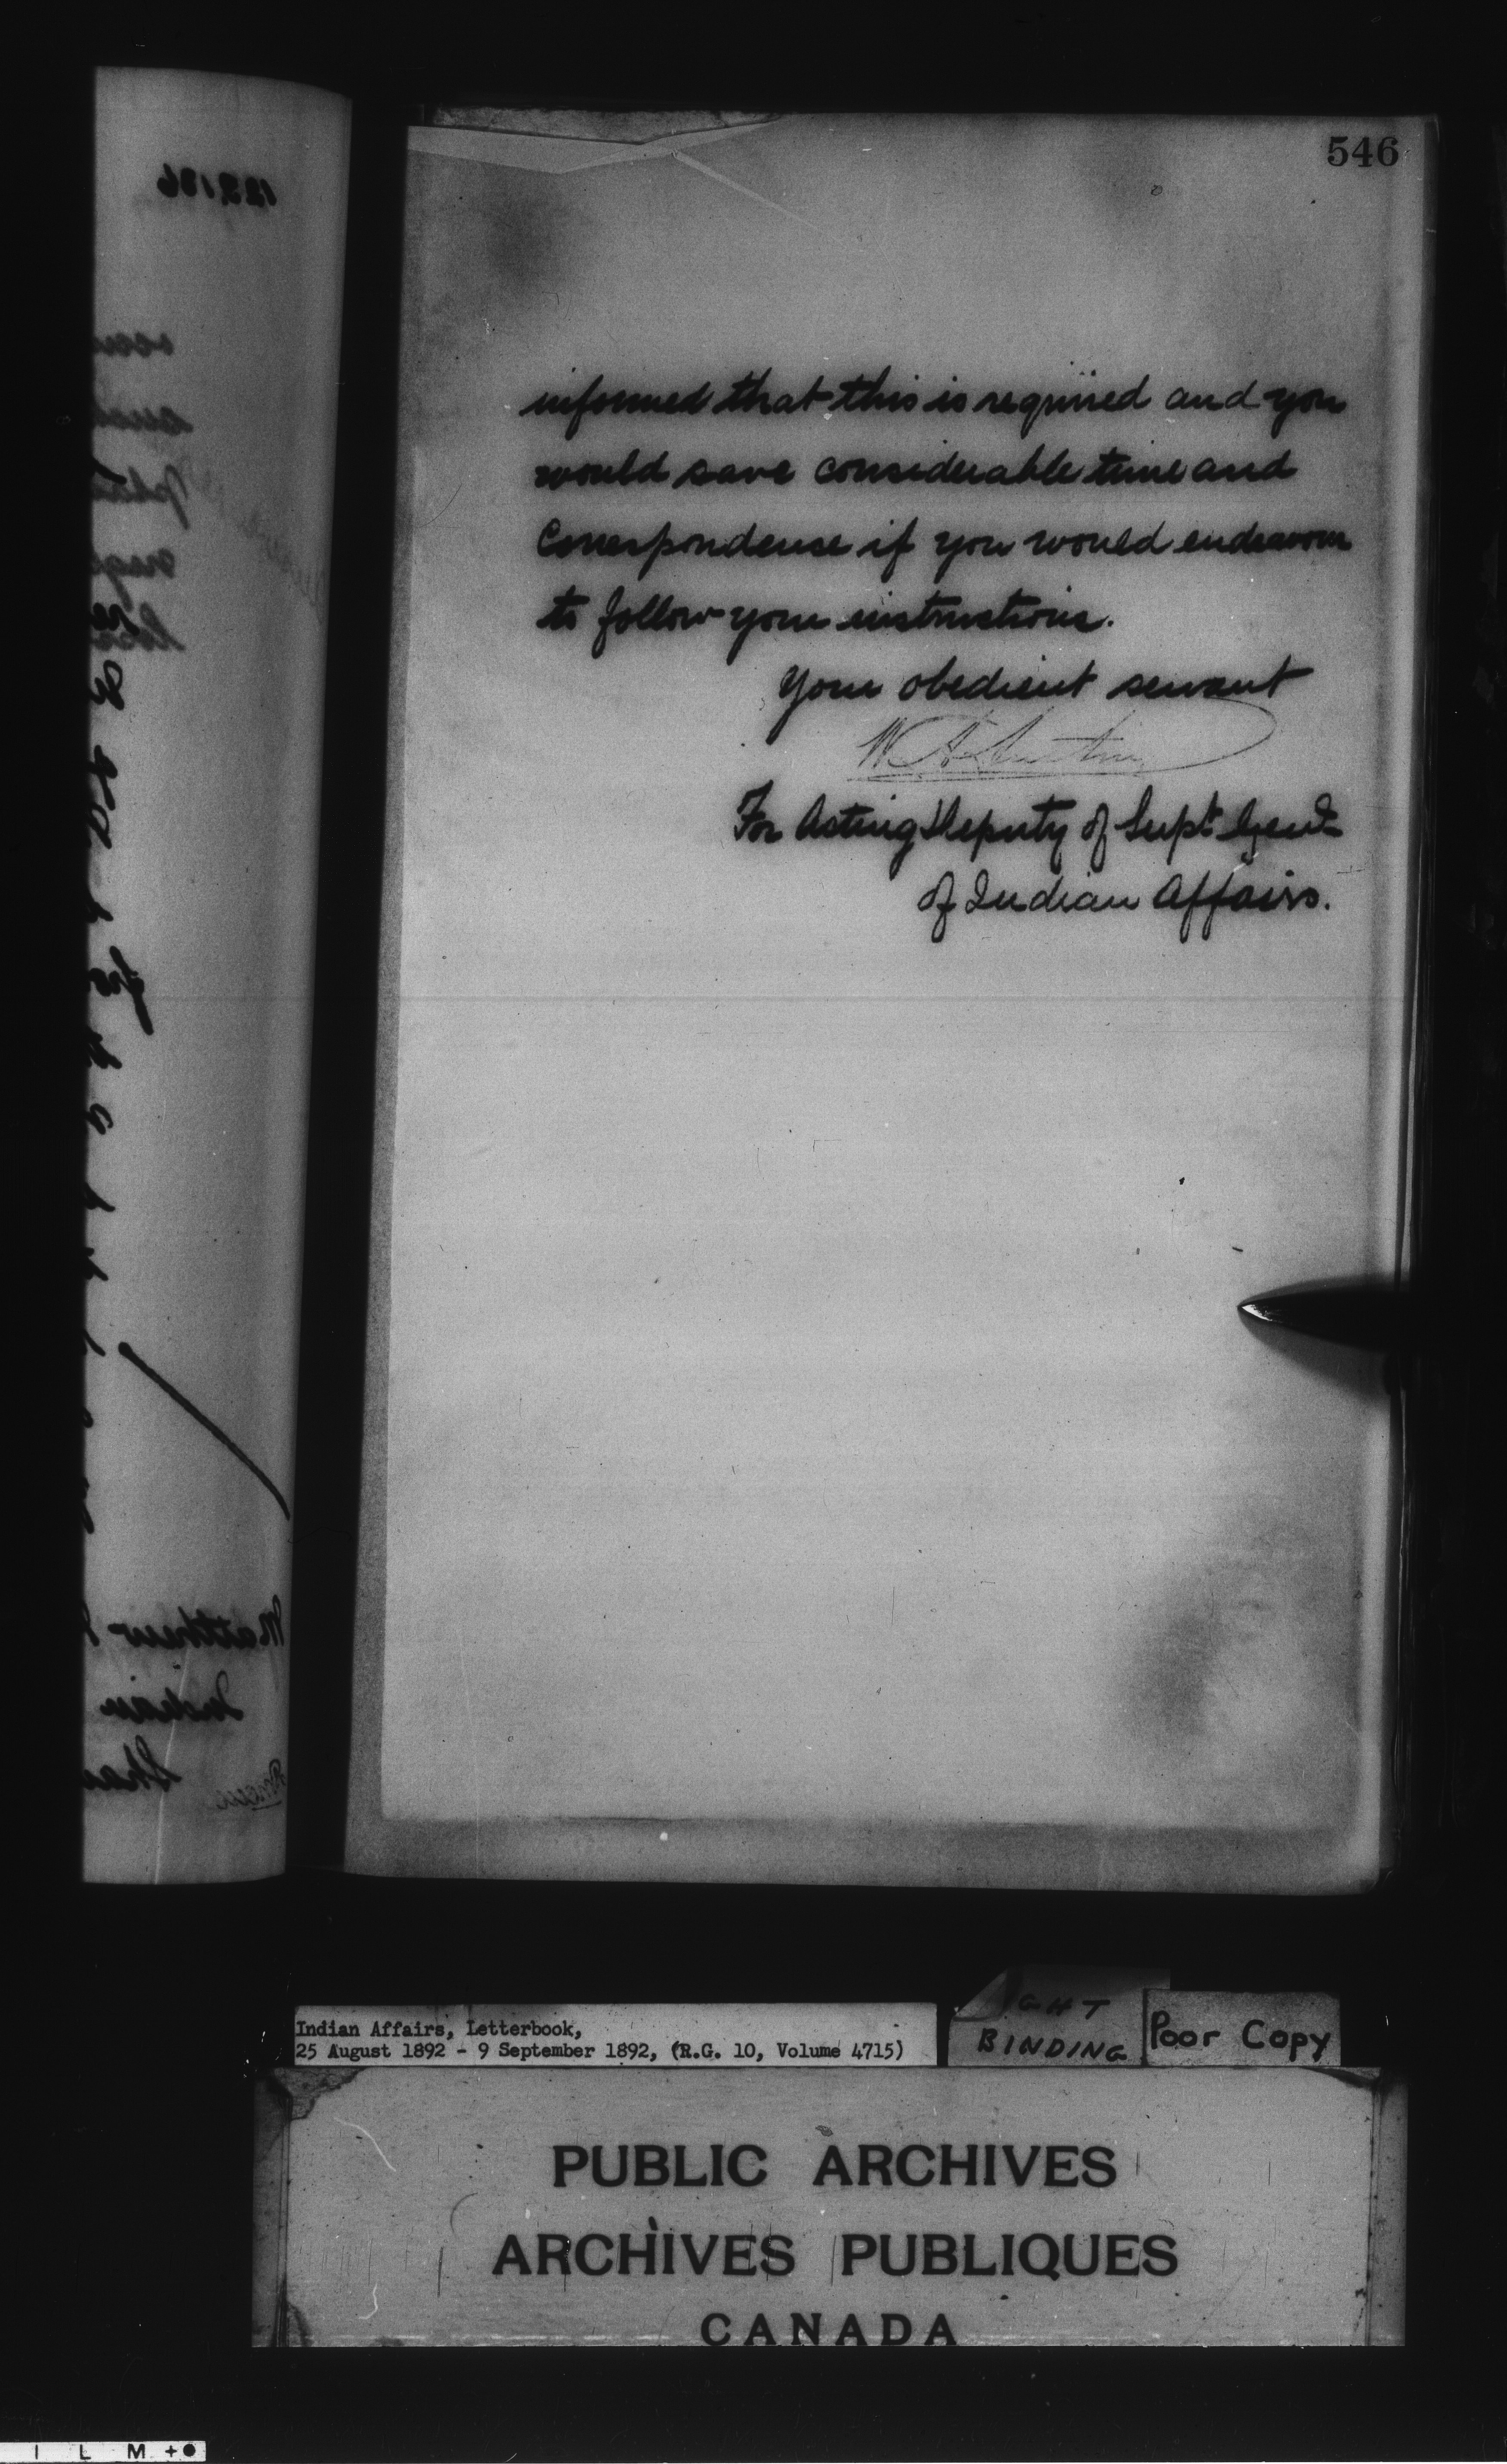 546
informed that this is required and you
would save considerable time and
Correspondence if you would endeavour
to follow your instructions.
Your obedient servant
For Acting Deputy of Supt Genl
of Indian Affairs.
122136
Matthew
Indian
Indian Affairs, Letterbook,
25 August 1892 - 9 September 1892, (R.G. 10, Volume 4715)
GHT
BINDING
Poor Copy
PUBLIC ARCHIVES
ARCHIVES PUBLIQUES
CANADA
I L M +